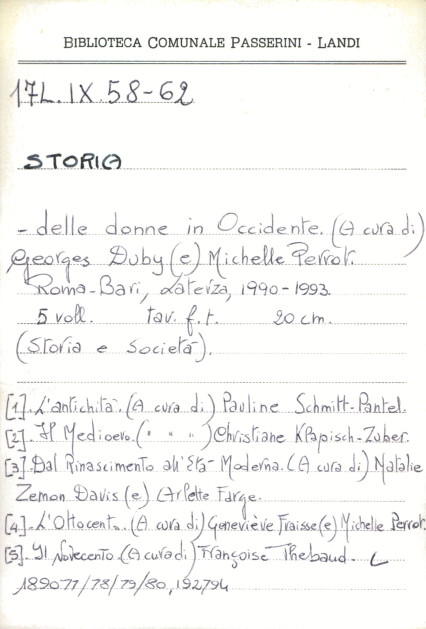 BIBLIOTECA COMUNALE PASSERINI - LANDI
17L.IX.58-62
STORIA
- delle donne in Occidente. (A cura di)
Georges Duby (e) Michelle Perrot.
Roma-Bari, Laterza, 1990-1993.
5 voll. tav. f.t. 20 cm.
(Storia e Società).
[1]. L'antichità. (A cura di) Pauline Schmitt-Pantel.
[2]. Il Medioevo. (" " ") Christiane Klapisch-Zuber.
[3]. Dal Rinascimento all'Età Moderna. (A cura di) Natalie
Zemon Davis (e) Arlette Farge.
[4]. L'Ottocento. (A cura di) Geneviève Fraisse (e) Michelle Perrot.
[5]. Il Novecento. (A cura di) Françoise Thebaud.
189077/78/79/80, 192794